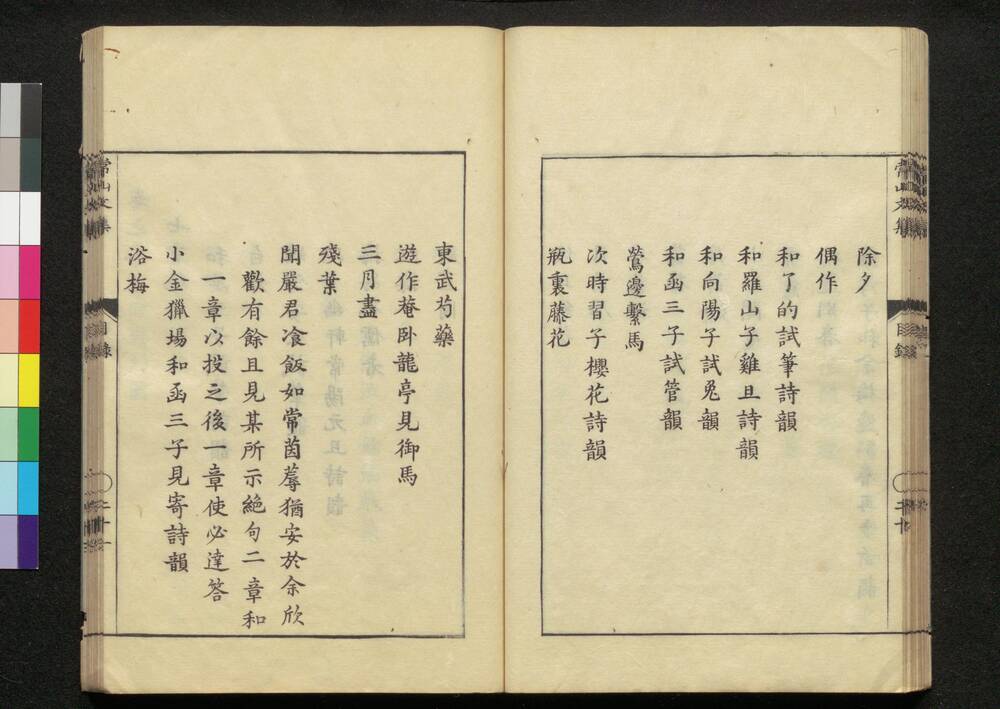 除夕
偶作
和了的試筆詩韻
和羅山子雞旦詩韻
和向陽子試兎韻
和函三子試管韻
鶯邊繫馬
次時習子櫻花詩韻
瓶裏藤花
東武芍藥
遊作菴臥龍亭見御馬
三月盡
殘葉
聞嚴君飡飯如常茵蓐猶安於余欣
歡有餘且見某所示絶句二章和
一章以投之後一章使必達答
小金獵場和函三子見寄詩韻
浴梅
常山文集
目錄
二十